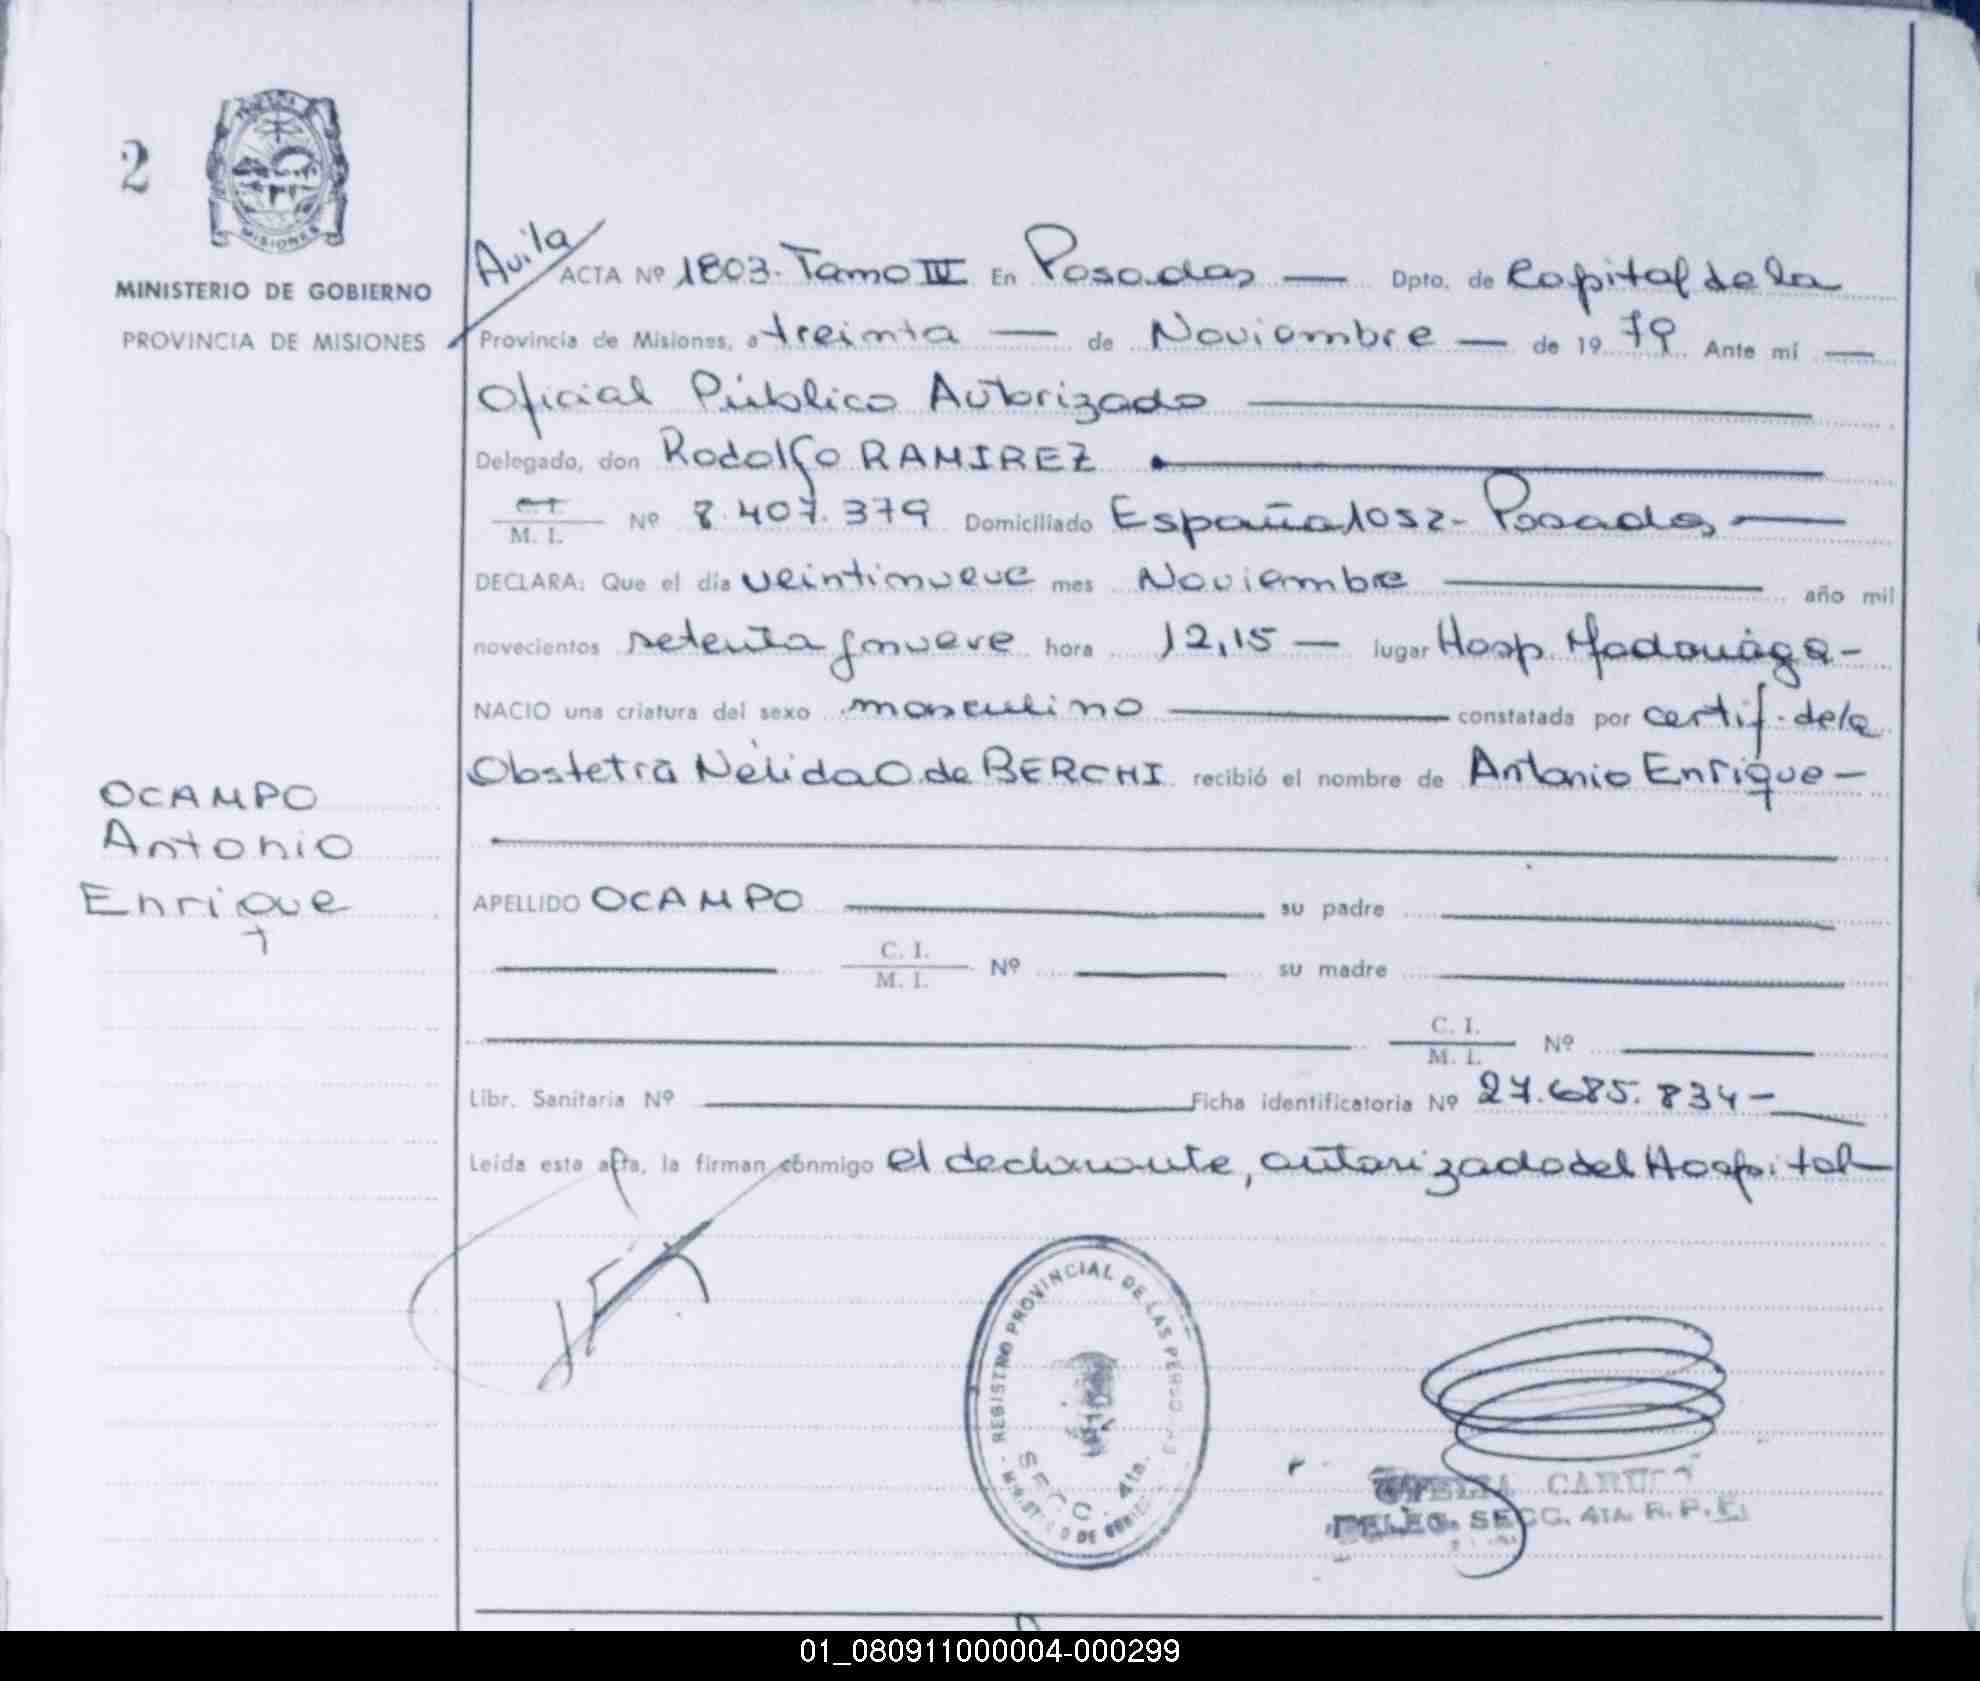 2
MISIONES
MINISTERIO DE GOBIERNO
PROVINCIA DE MISIONES
Avila
ACTA Nº 1803. Tomo III En Posadas — Dpto. de Capital de la
Provincia de Misiones, a treinta — de Noviembre — de 19 79 Ante mí —
Oficial Público Autorizado
Delegado, don Rodolfo RAMIREZ
C. I.
M. I. Nº 8.407.379 Domiciliado España 1052 - Posadas —
DECLARA: Que el día veintinueve mes Noviembre — año mil
novecientos setenta y nueve hora 12,15 — lugar Hosp. Madariaga -
NACIO una criatura del sexo masculino — constatada por certif. de la
Obstetra Nélida O. de BERCHI recibió el nombre de Antonio Enrique —
OCAMPO
Antonio
Enrique
APELLIDO OCAMPO — su padre
C. I.
M. I. Nº — su madre
C. I.
M. I. Nº
Libr. Sanitaria Nº — Ficha identificatoria Nº 27.685.834 -
Leída esta acta, la firman conmigo el declarante, autorizado del Hospital
REGISTRO PROVINCIAL DE LAS
SECC. 4ta.
DELEG. SECC. 4TA. R. P. P.
01_080911000004-000299